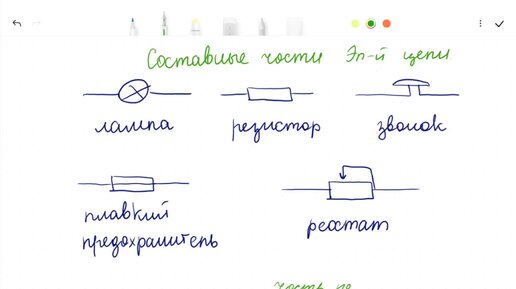 Составные части Эл-й цепи
лампа
резистор
звонок
плавкий
предохранитель
реостат
часть